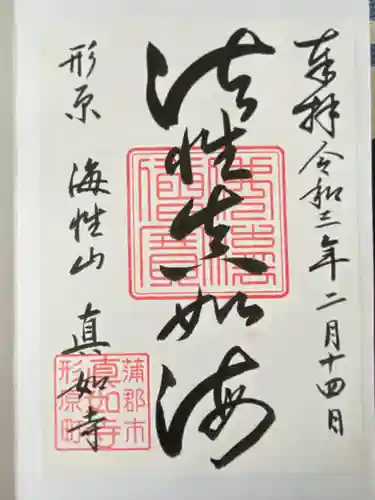 奉拝 令和三年二月十四日
法性真如海
形原 海性山 真如寺
蒲郡市
真如寺
形原町